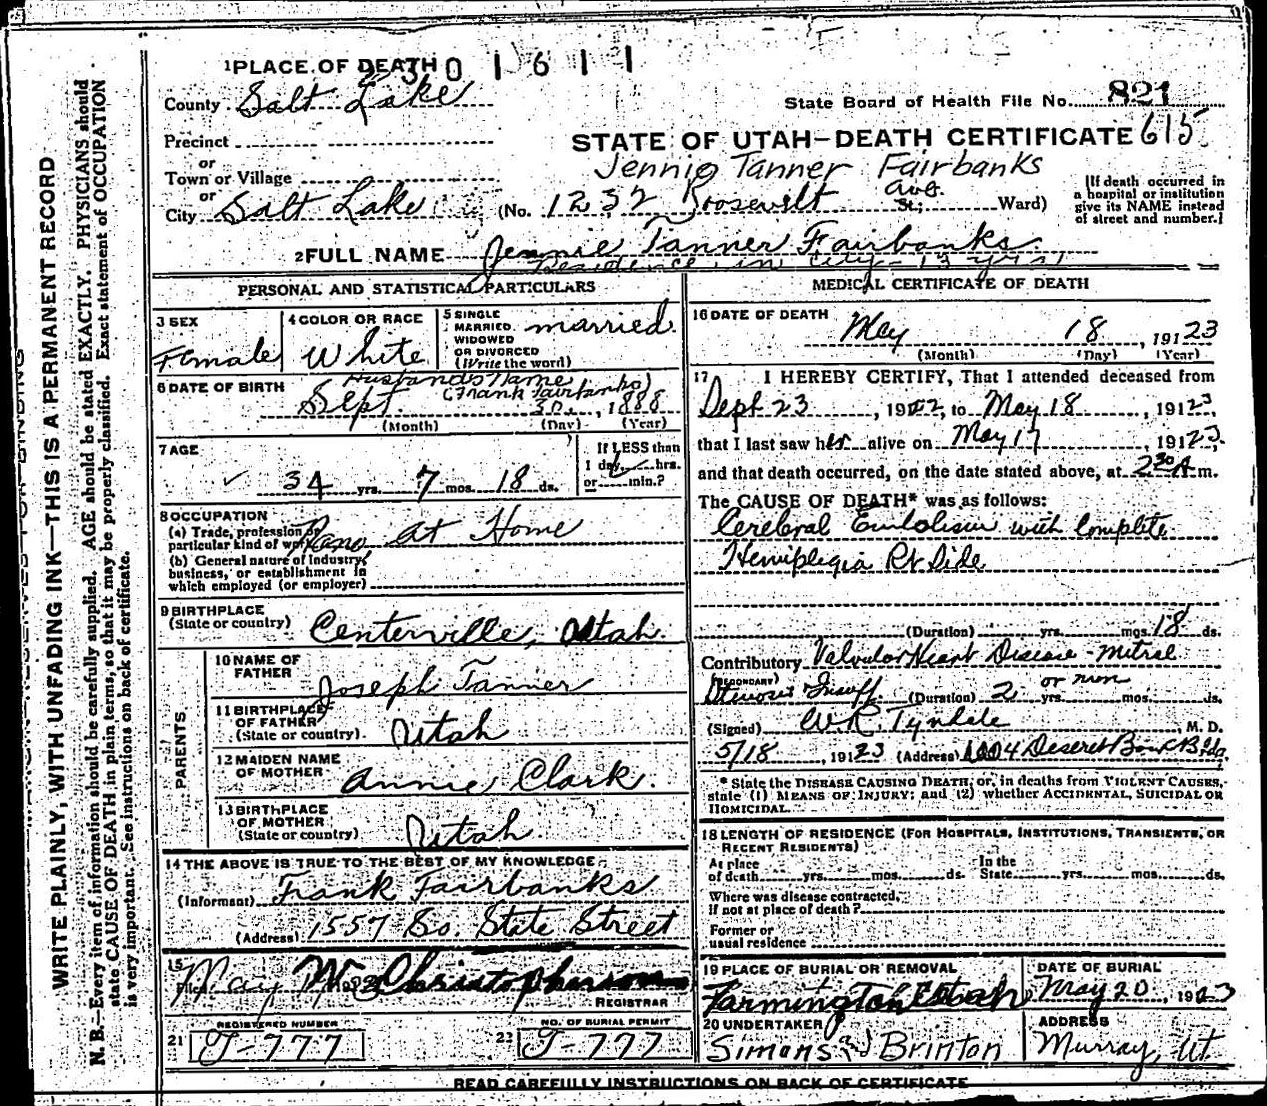 1 PLACE OF DEATH 2301611
County Salt Lake
State Board of Health File No. 821
Precinct
STATE OF UTAH—DEATH CERTIFICATE 615
or
Jennie Tanner Fairbanks
Town or Village
or
City Salt Lake (No. 1232 Roosevelt Ave. St; Ward)
[If death occurred in a hospital or institution give its NAME instead of street and number.]
2 FULL NAME Jennie Tanner Fairbanks
Residence in city 13 yrs
PERSONAL AND STATISTICAL PARTICULARS
3 SEX
Female
4 COLOR OR RACE
White
5 SINGLE
MARRIED
WIDOWED
OR DIVORCED
(Write the word)
married
6 DATE OF BIRTH
Husband's Name
(Frank Fairbanks)
Sept. 30, 1888
(Month) (Day) (Year)
7 AGE
34 yrs. 7 mos. 18 ds.
If LESS than
1 day, hrs.
or min.?
8 OCCUPATION
(a) Trade, profession or
particular kind of work At Home
(b) General nature of Industry,
business, or establishment in
which employed (or employer)
9 BIRTHPLACE
(State or country) Centerville, Utah.
PARENTS
10 NAME OF
FATHER
Joseph Tanner
11 BIRTHPLACE
OF FATHER
(State or country). Utah
12 MAIDEN NAME
OF MOTHER
Annie Clark.
13 BIRTHPLACE
OF MOTHER
(State or country) Utah.
14 THE ABOVE IS TRUE TO THE BEST OF MY KNOWLEDGE
(Informant) Frank Fairbanks
(Address) 1557 So. State Street
15
May Wm Christopherson
REGISTRAR
21 REGISTERED NUMBER
J-777
22 NO. OF BURIAL PERMIT
J-777
MEDICAL CERTIFICATE OF DEATH
16 DATE OF DEATH
May 18, 19123
(Month) (Day) (Year)
17 I HEREBY CERTIFY, That I attended deceased from
Sept 23, 1922, to May 18, 19123,
that I last saw her alive on May 17, 19123,
and that death occurred, on the date stated above, at 2 30 A m.
The CAUSE OF DEATH* was as follows:
Cerebral Embolism with Complete
Hemiplegia Rt Side
(Duration) yrs. mos. 18 ds.
Contributory Valvular Heart Disease - Mitral
(SECONDARY)
Stenosis Insuff. (Duration) 2 or more yrs. mos. ds.
(Signed) W R Tyndale, M. D.
5/18, 19123 (Address) 1004 Deseret Bank Bldg
* State the DISEASE CAUSING DEATH, or, in deaths from VIOLENT CAUSES,
state (1) MEANS OF INJURY; and (2) whether ACCIDENTAL, SUICIDAL OR
HOMICIDAL.
18 LENGTH OF RESIDENCE (FOR HOSPITALS, INSTITUTIONS, TRANSIENTS, OR
RECENT RESIDENTS)
At place
of death yrs. mos. ds.
In the
State yrs. mos. ds.
Where was disease contracted,
if not at place of death?
Former or
usual residence
19 PLACE OF BURIAL OR REMOVAL
Farmington Utah
DATE OF BURIAL
May 20, 1923
20 UNDERTAKER
Simons and Brinton
ADDRESS
Murray, Ut
READ CAREFULLY INSTRUCTIONS ON BACK OF CERTIFICATE
WRITE PLAINLY, WITH UNFADING INK—THIS IS A PERMANENT RECORD
N. B.—Every item of information should be carefully supplied. AGE should be stated EXACTLY. PHYSICIANS should
state CAUSE OF DEATH in plain terms, so that it may be properly classified. Exact statement of OCCUPATION
is very important. See instructions on back of certificate.